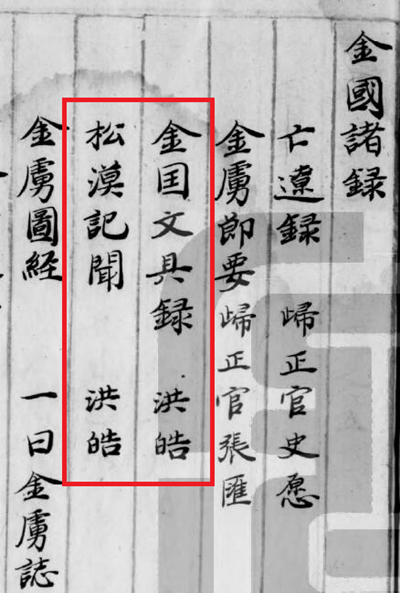 金國諸録
亡遼録 㱕正官史愿
金虜節要 㱕正官張匯
金囯文具録 洪皓
松漠記聞 洪皓
金虜圖経 一曰金虜誌